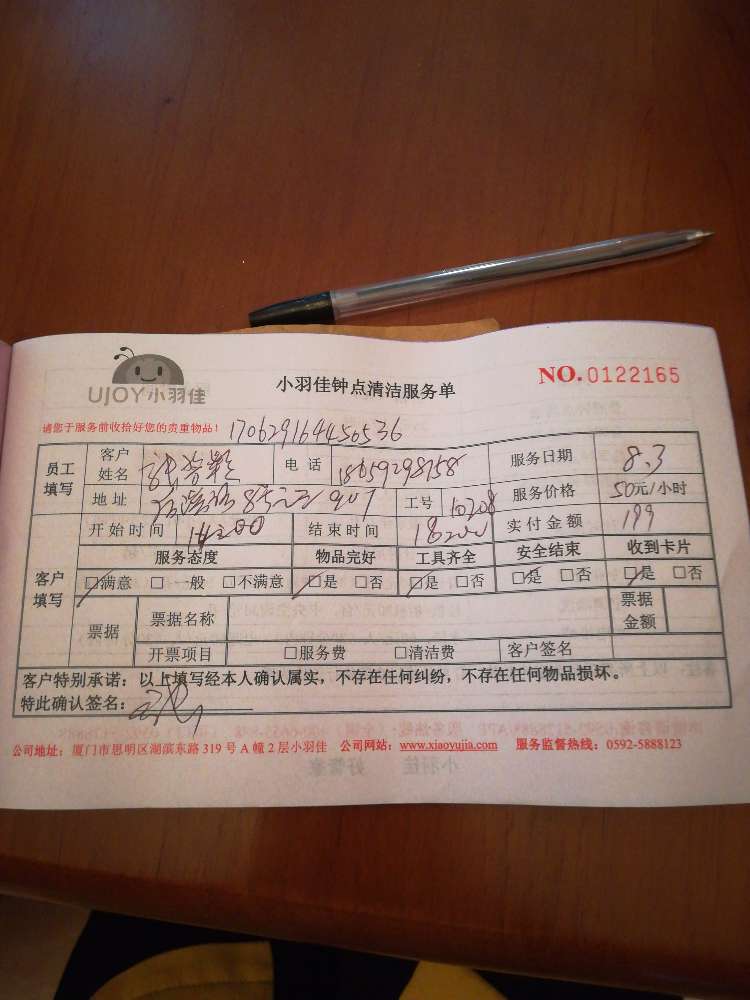 UJOY小羽佳
小羽佳钟点清洁服务单
NO.0122165
请您于服务前收拾好您的贵重物品！ 170629164456536
员工填写 客户姓名 电话 18659298758 服务日期 8.3
地址 工号 10208 服务价格 50元/小时
开始时间 14:00 结束时间 18:00 实付金额 199
服务态度 物品完好 工具齐全 安全结束 收到卡片
客户填写 □满意 □一般 □不满意 □是 □否 □是 □否 □是 □否 □是 □否
票据 票据名称 票据金额
开票项目 □服务费 □清洁费 客户签名
客户特别承诺：以上填写经本人确认属实，不存在任何纠纷，不存在任何物品损坏。
特此确认签名：
公司地址：厦门市思明区湖滨东路319号A幢2层小羽佳 公司网站：www.xiaoyujia.com 服务监督热线：0592-5888123